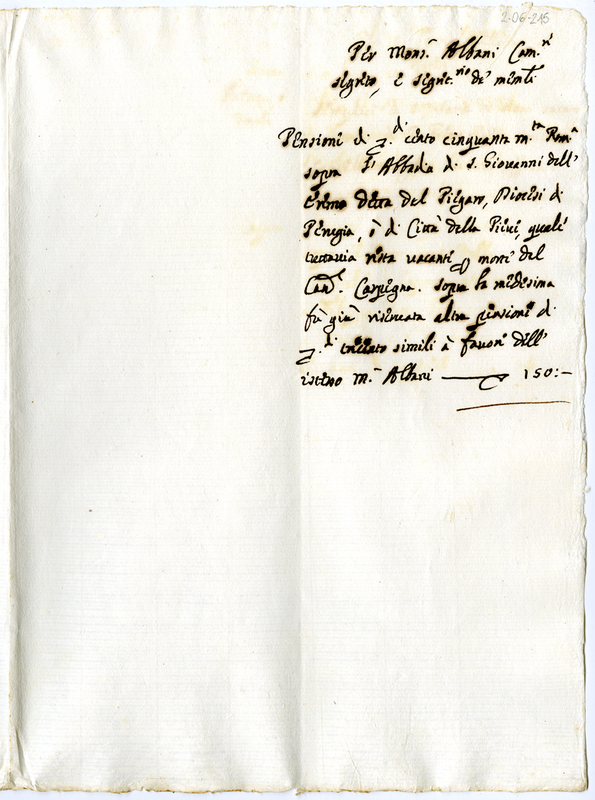 2-06-215
Per Mons.r Albani Cam.ri
segreto, e segret.rio de memli
Pensione di z.di cento cinquanta m.ta Rom.a
sopra l'Abbadia di S. Giovanni dell'
Eremo detta del Piegaro, Diocesi di
Perugia, ò di Città della Pieve, quale
tuttavia resta vacante p morte del
Card. Carpegna. sopra la medesima
fù già riservata altra pensione di
z.di trecento simili à favore dell'
istesso m.r Albani 150:-